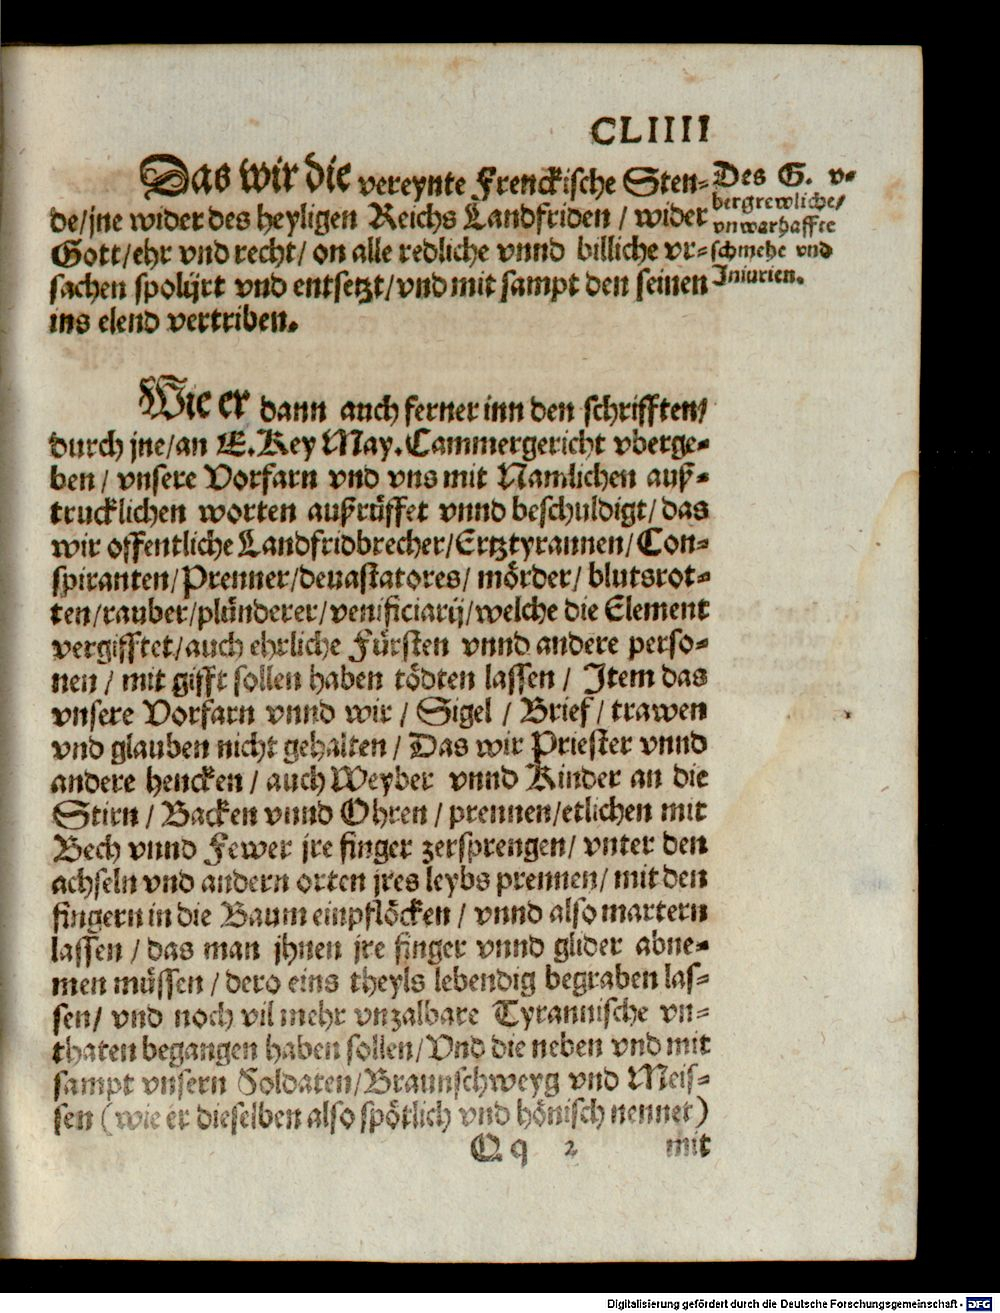 CLIIII
Das wir die vereynte Frenckische Sten-
de/jne wider des heyligen Reichs Landfriden / wider
Gott/ehr vnd recht/ on alle redliche vnnd billiche vr-
sachen spolijrt vnd entsetzt/vnd mit sampt den seinen
ins elend vertriben.
Des G. v-
bergrewliche/
vnwarhaffte
schmehe vnd
Iniurien.
Wie er dann auch ferner inn den schrifften/
durch jne/an E.Key May.Cammergericht vberge-
ben / vnsere Vorfarn vnd vns mit Namlichen auß-
trucklichen worten außrüffet vnnd beschuldigt/ das
wir offentliche Landfridbrecher/Ertztyrannen/Con-
spiranten/Prenner/deuastatores/ mörder/ blutsrot-
ten/rauber/plünderer/venificiarij/welche die Element
vergifftet/auch ehrliche Fürsten vnnd andere perso-
nen / mit gifft sollen haben tödten lassen / Item das
vnsere Vorfarn vnnd wir / Sigel / Brief / trawen
vnd glauben nicht gehalten / Das wir Priester vnnd
andere hencken / auch Weyber vnnd Kinder an die
Stirn / Backen vnnd Ohren / prennen/etlichen mit
Bech vnnd Fewer jre finger zersprengen/ vnter den
achseln vnd andern orten jres leybs prennen/ mit den
fingern in die Baum einpflöcken / vnnd also martern
lassen / das man jhnen jre finger vnnd glider abne-
men müssen / dero eins theyls lebendig begraben las-
sen/ vnd noch vil mehr vnzalbare Tyrannische vn-
thaten begangen haben sollen/Vnd die neben vnd mit
sampt vnsern Soldaten/Braunschweyg vnd Meis-
sen (wie er dieselben also spötlich vnd hönisch nennet)
Q q 2 mit
Digitalisierung gefördert durch die Deutsche Forschungsgemeinschaft - DFG